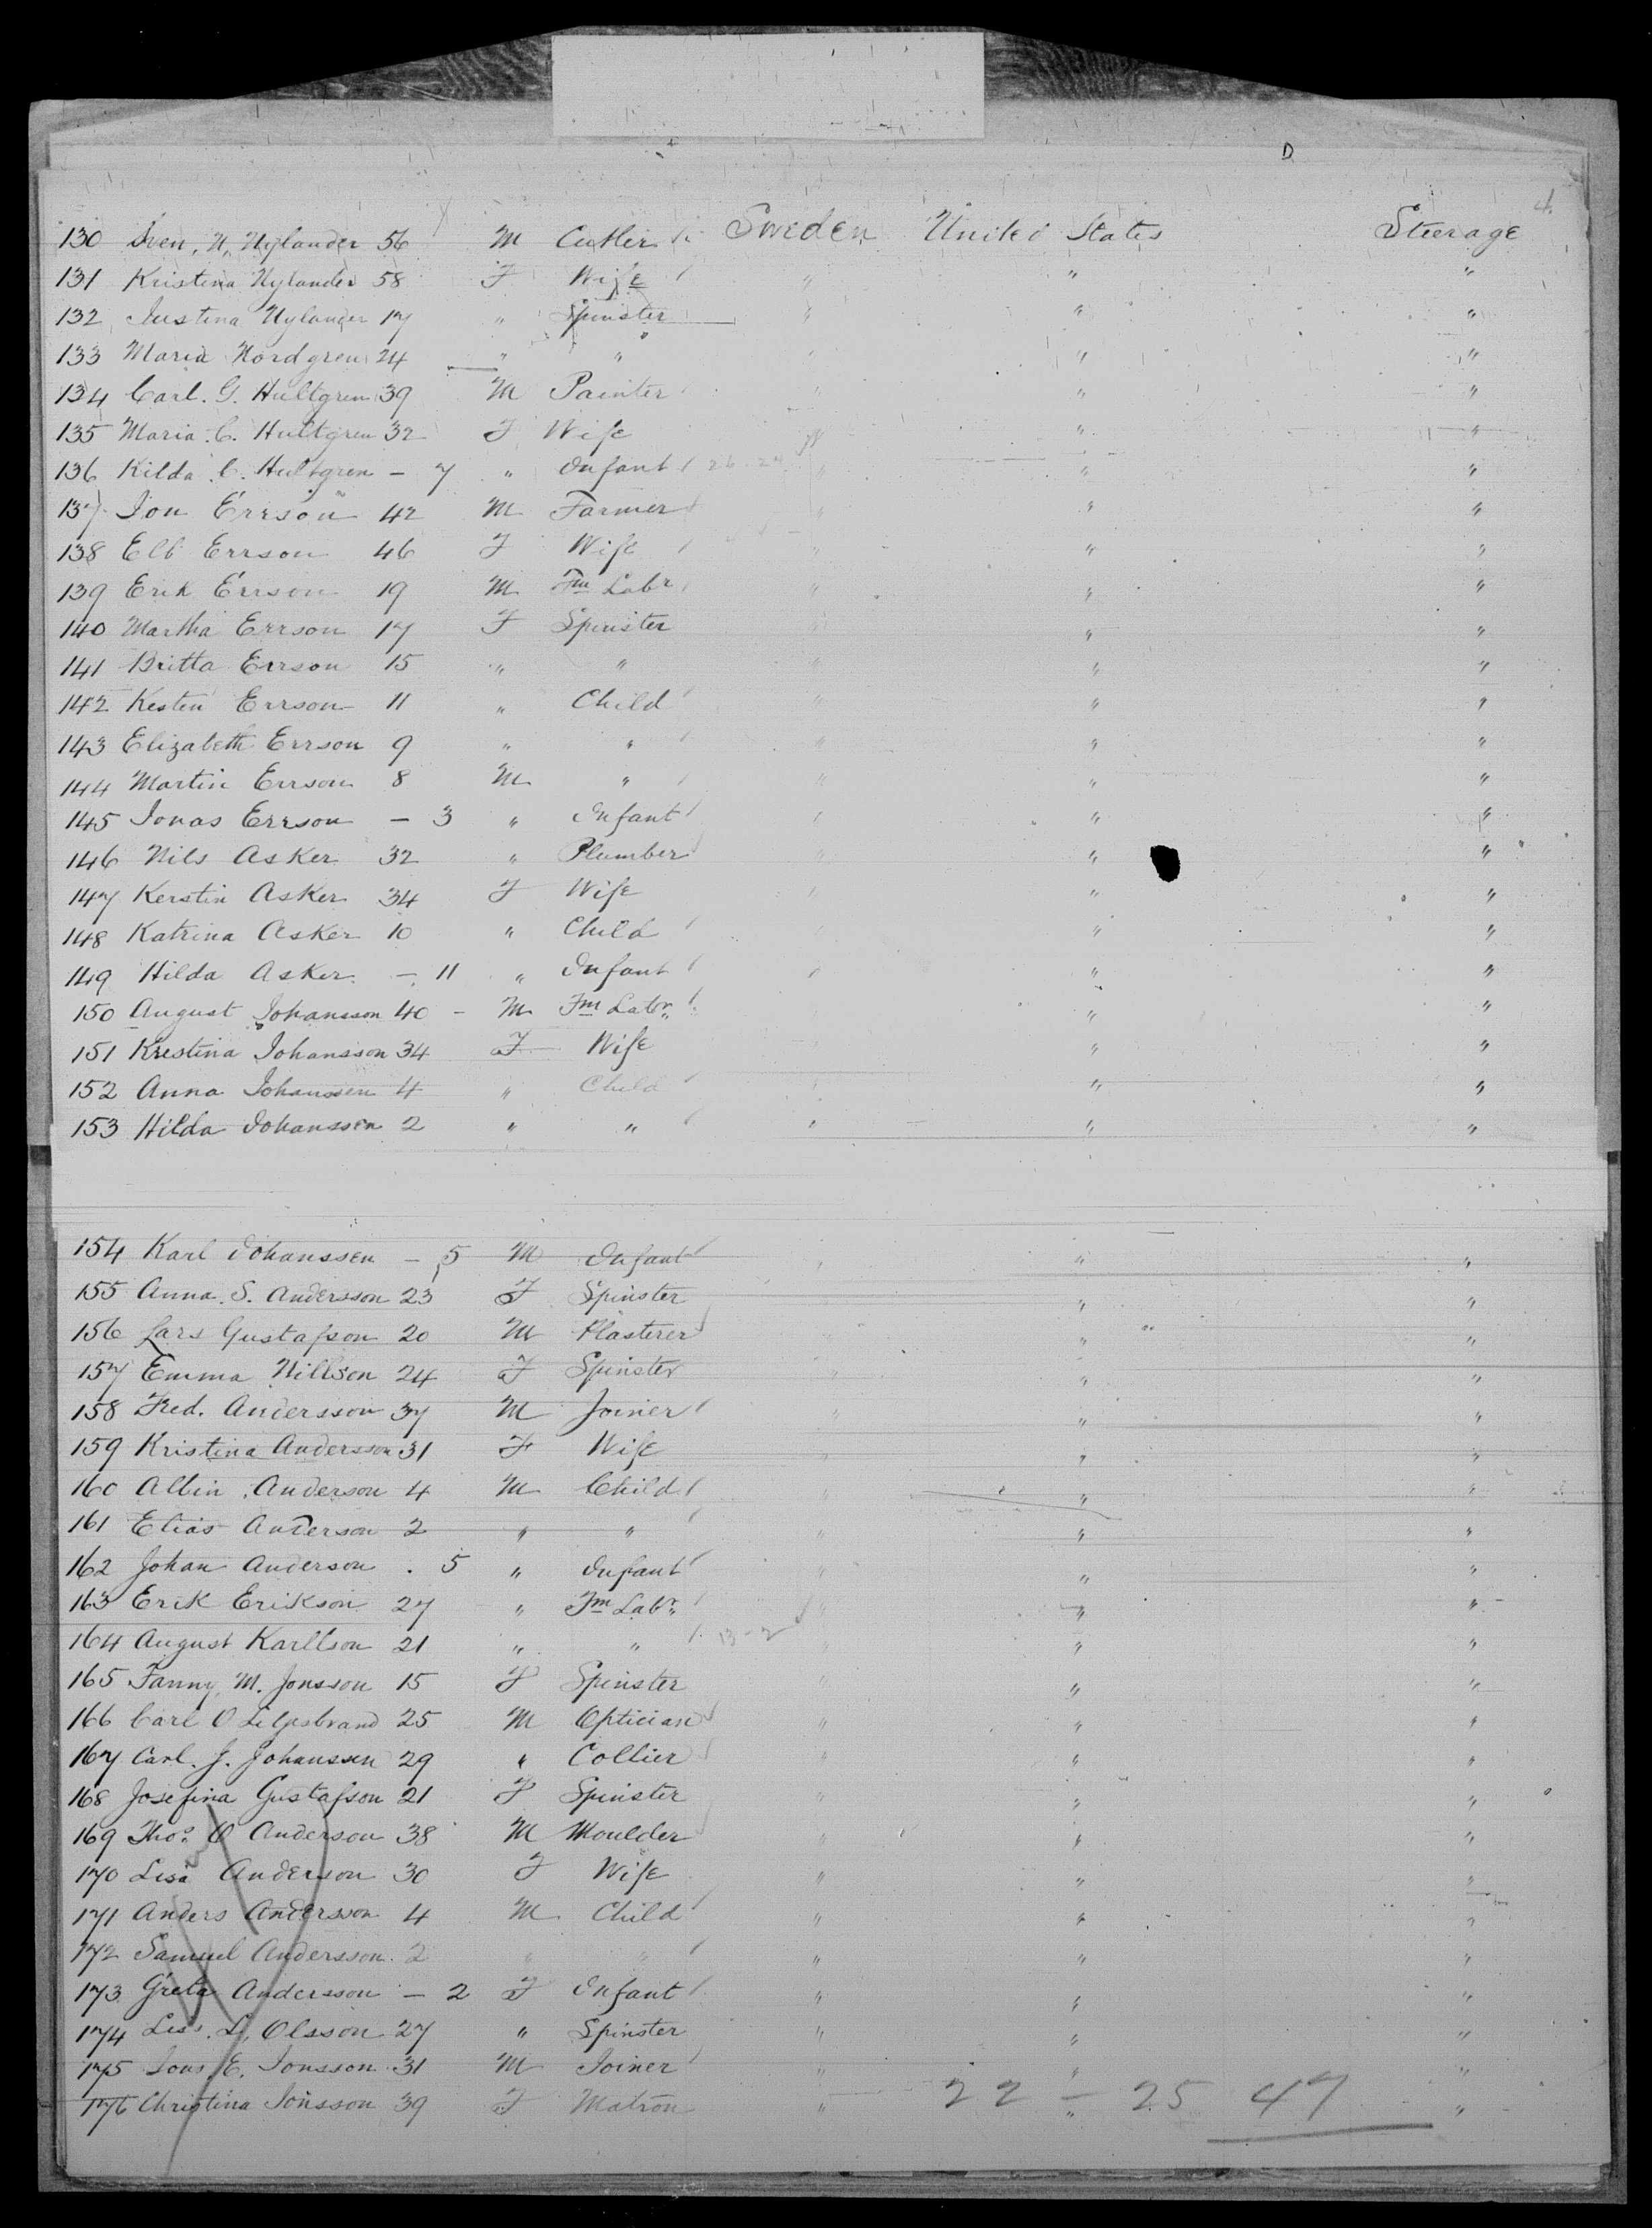 D
4
130 Sven. N. Nylander 56 M Cutler Sweden United States Steerage
131 Kristina Nylander 58 F Wife " " "
132 Justina Nylander 17 " Spinster " " "
133 Maria Nordgren 24 " " " " "
134 Carl. G. Hultgren 39 M Painter " " "
135 Maria. C. Hultgren 32 F Wife " " "
136 Hilda. C. Hultgren - 7 " Infant 26-24 " " "
137 Jon Errson 42 M Farmer " " "
138 Errson 46 F Wife " " "
139 Erik Errson 19 M Fm Labr " " "
140 Martha Errson 17 F Spinster " " "
141 Britta Errson 15 " " " " "
142 Errson 11 " Child " " "
143 Elizabeth Errson 9 " " " " "
144 Martin Errson 8 M " " " "
145 Jonas Errson - 3 " Infant " " "
146 Nils Asker 32 " Plumber " " "
147 Kerstin Asker 34 F Wife " " "
148 Katrina Asker 10 " Child " " "
149 Hilda Asker - 11 " Infant " " "
150 August Johansson 40 - M Fm Labr " "
151 Krestina Johansson 34 F Wife " "
152 Anna Johanssen 4 " Child " " "
153 Hilda Johanssen 2 " " " " "
154 Karl Johanssen - 5 M Infant " " "
155 Anna. S. Andersson 23 F Spinster " "
156 Lars Gustafson 20 M Plasterer " "
157 Emma Nillson 24 F Spinster " " "
158 Fred. Andersson 37 M Joiner " " "
159 Kristina Andersson 31 F Wife " " "
160 Albin. Anderson 4 M Child " " "
161 Elias Anderson 2 " " " " "
162 Johan Anderson . 5 " Infant " " "
163 Erik Erikson 27 " Fm Labr " " "
164 August Karllson 21 " " 13-2 " " "
165 Fanny. M. Jonsson 15 F Spinster " " "
166 Carl O 25 M Optician " " "
167 Carl. J. Johanssen 29 " Collier " " "
168 Josefina Gustafson 21 F Spinster " " "
169 Thos. O Anderson 38 M Moulder " " "
170 Lisa Anderson 30 F Wife " " "
171 Anders Andersson 4 M Child " " "
172 Samuel Andersson. 2 " " " " "
173 Greta Andersson - 2 F Infant " " "
174 L. Olsson 27 " Spinster " " "
175 E. Jonsson 31 M Joiner " " "
176 Christina Jonsson 39 F Matron " " "
22 - 25 47